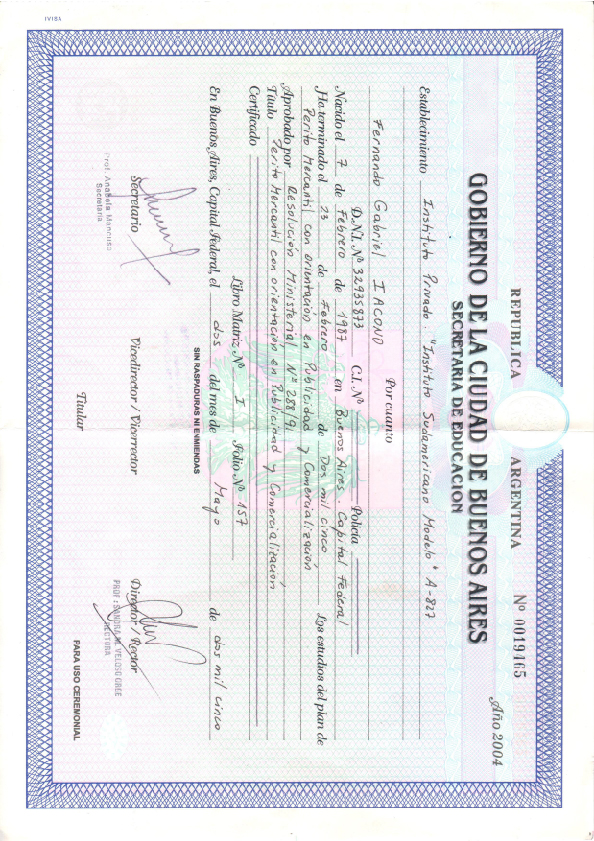 REPUBLICA ARGENTINA Nº 0019465
Año 2004
GOBIERNO DE LA CIUDAD DE BUENOS AIRES
SECRETARIA DE EDUCACION
Establecimiento Instituto Privado. "Instituto Sudamericano Modelo" A-827
Por cuanto
Fernando Gabriel IACONO
D.N.I. Nº 32935873 C.I. Nº Policía
Nacido el 7 de Febrero de 1987 en Buenos Aires. Capital Federal
Ha terminado el 23 de Febrero de Dos mil cinco Los estudios del plan de
Perito Mercantil con orientación en Publicidad y Comercialización
Aprobado por Resolución Ministerial Nº 288/91
Título Perito Mercantil con orientación en Publicidad y Comercialización
Certificado
Libro Matriz Nº I Folio Nº 157
En Buenos Aires, Capital Federal, el dos del mes de Mayo de dos mil cinco
SIN RASPADURAS NI ENMIENDAS
Secretario Vicedirector / Vicerrector Director / Rector
Prof. Anabela Mancuso PROF: SANDRA M. VELOSO OREE
Secretaria RECTORA
Titular
PARA USO CEREMONIAL